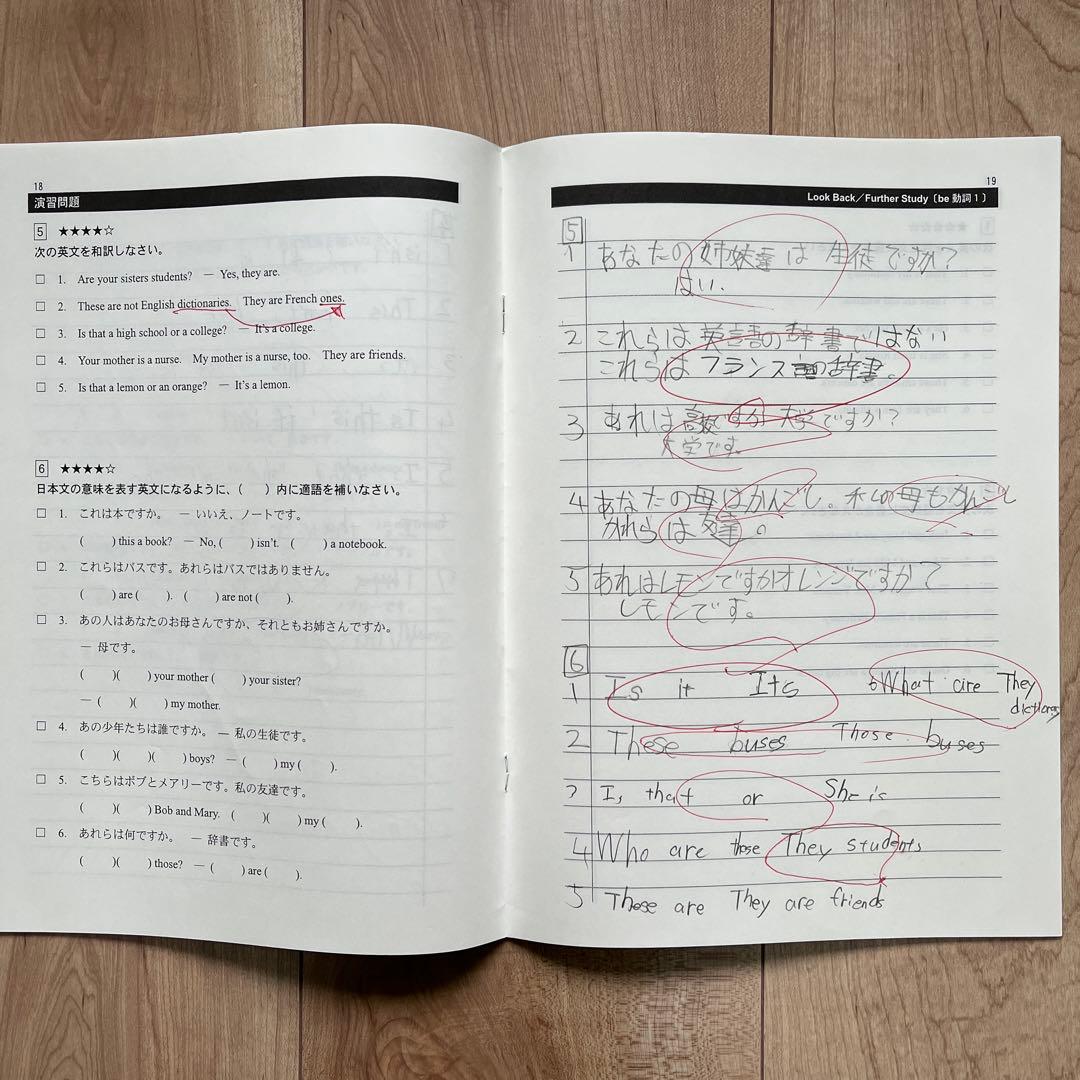 18
演習問題
5 ★★★★☆
次の英文を和訳しなさい。
□ 1. Are your sisters students? — Yes, they are.
□ 2. These are not English dictionaries. They are French ones.
□ 3. Is that a high school or a college? — It's a college.
□ 4. Your mother is a nurse. My mother is a nurse, too. They are friends.
□ 5. Is that a lemon or an orange? — It's a lemon.
6 ★★★★☆
日本文の意味を表す英文になるように、( )内に適語を補いなさい。
□ 1. これは本ですか。 — いいえ、ノートです。
( ) this a book? — No, ( ) isn't. ( ) a notebook.
□ 2. これらはバスです。あれらはバスではありません。
( ) are ( ). ( ) are not ( ).
□ 3. あの人はあなたのお母さんですか、それともお姉さんですか。
— 母です。
( )( ) your mother ( ) your sister?
— ( )( ) my mother.
□ 4. あの少年たちは誰ですか。 — 私の生徒です。
( )( )( ) boys? — ( ) my ( ).
□ 5. こちらはボブとメアリーです。私の友達です。
( )( ) Bob and Mary. ( )( ) my ( ).
□ 6. あれらは何ですか。 — 辞書です。
( )( ) those? — ( ) are ( ).
19
Look Back／Further Study〔be 動詞 1〕
5
1 あなたの姉妹達は生徒ですか?
はい.
2 これらは英語の辞書ではない
これらはフランス語の辞書。
3 あれは高校ですか大学ですか?
大学です。
4 あなたの母はかんごし。私の母もかんごし
かれらは友達。
5 あれはレモンですかオレンジですか?
レモンです。
6
1 Is it Its
6 What are They
dictionary
2 These buses Those buses
3 Is that or She is
4 Who are those They students
5 These are They are friends